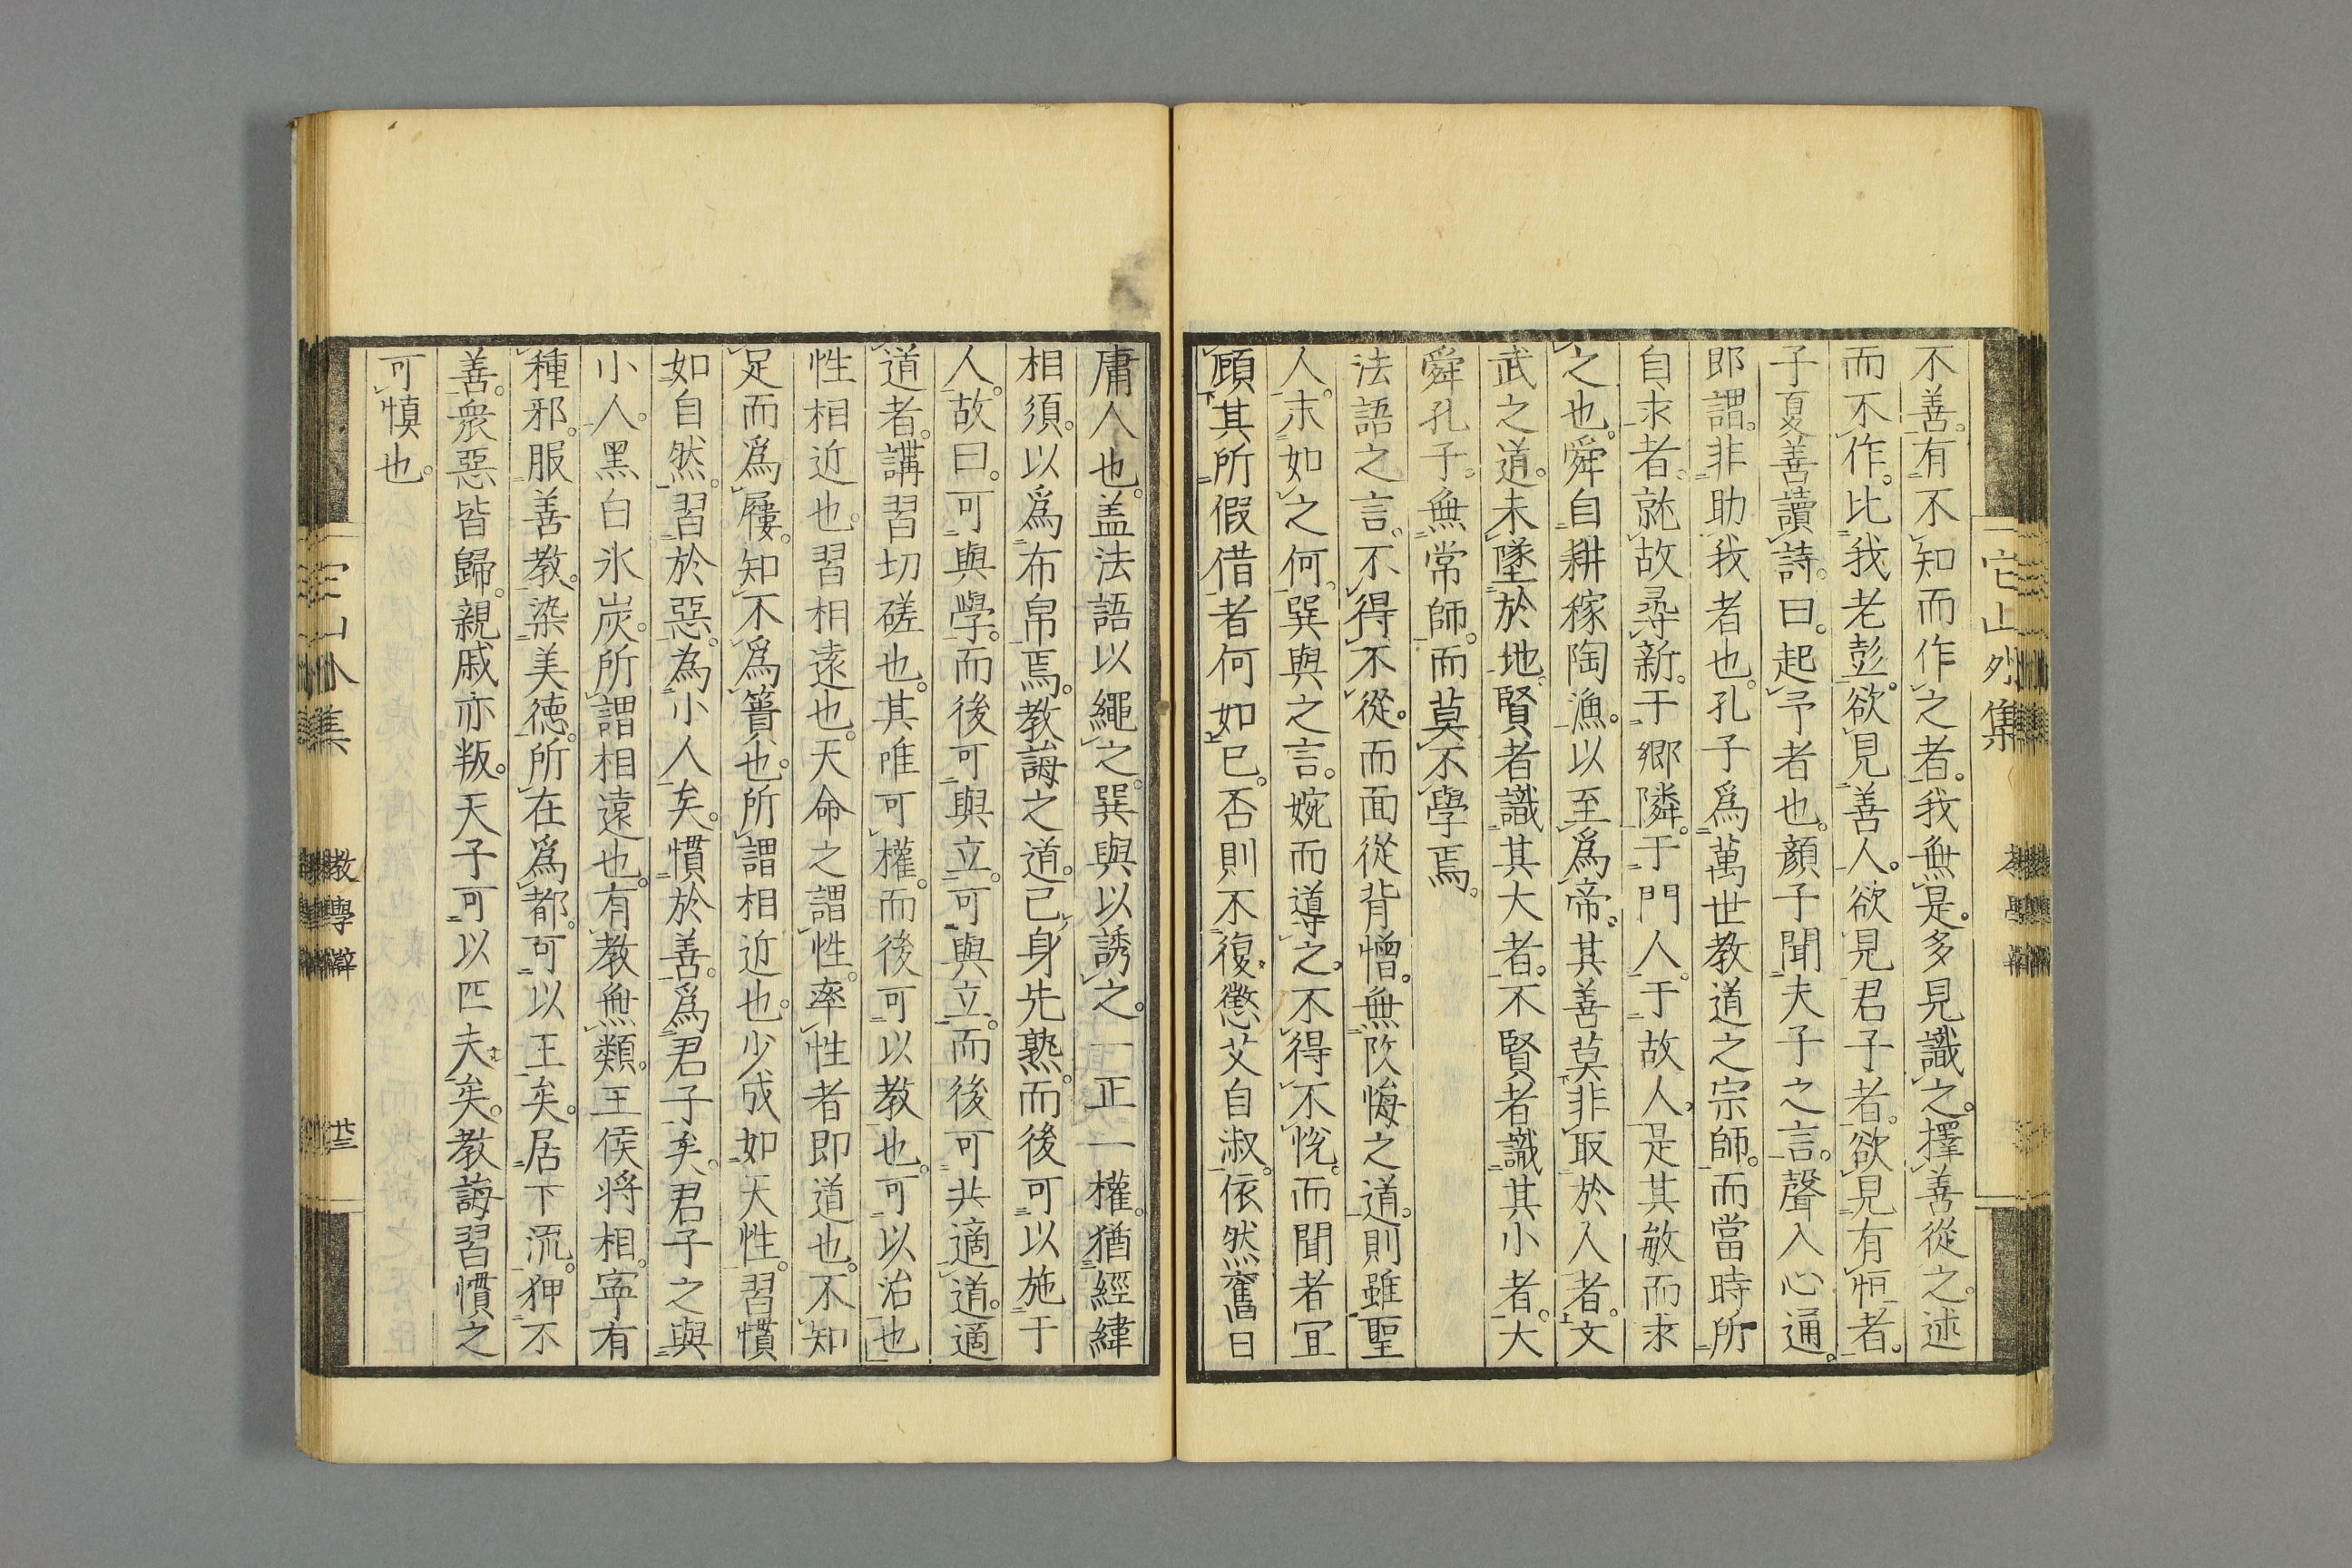 不善。有不知而作之者。我無是。多見識之。擇善從之。述
而不作。比我老彭。欲見善人。欲見君子者。欲見有恒者。
子夏善讀詩。曰。起予者也。顏子聞夫子之言。聲入心通。
即謂。非助我者也。孔子爲萬世教道之宗師。而當時所
自求者。就故尋新。于鄉隣。于門人。于故人。是其敏而求
之也。舜自耕稼陶漁。以至爲帝。其善莫非取於人者。文
武之道。未墜於地。賢者識其大者。不賢者識其小者。大
舜孔子。無常師。而莫不學焉。
法語之言。不得不從。而面從背憎。無改悔之道。則雖聖
人。末如之何。巽與之言。婉而導之。不得不悅。而聞者宜
顧其所假借者何如已。否則不復懲艾自淑。依然舊日
庸人也。盖法語以繩之。巽與以誘之。一正一權。猶經緯
相須。以爲布帛焉。教誨之道。己身先熟。而後可以施于
人。故曰。可與學。而後可與立。可與立。而後可共適道。適
道者。講習切磋也。其唯可權。而後可以教也。可以治也
性相近也。習相遠也。天命之謂性。率性者即道也。不知
足而爲屨。知不爲簣也。所謂相近也。少成如天性。習慣
如自然。習於惡。為小人矣。慣於善。爲君子矣。君子之與
小人。黑白氷炭。所謂相遠也。有教無類。王侯将相。寧有
種邪。服善教。染美徳。所在爲都。可以王矣。居下流。狎不
善。衆惡皆歸。親戚亦叛。天子可以匹夫矣。教誨習慣之
可慎也。
它山外集
教學辯
廿三